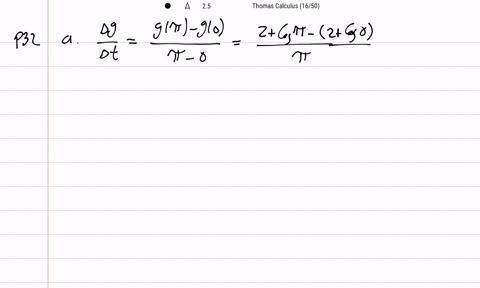 2.5 Thomas Calculus (16/50)
P32 a. Δg/Δt = (g(π) - g(0))/(π - 0) = (2 + Cos π - (2 + Cos 0))/π